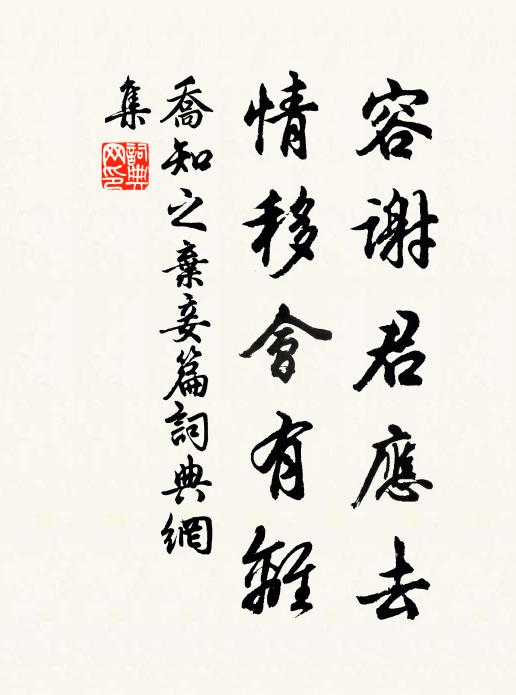 容謝君應去
情移會有離
喬知之棄妾篇詞典網
集
詞典
网印